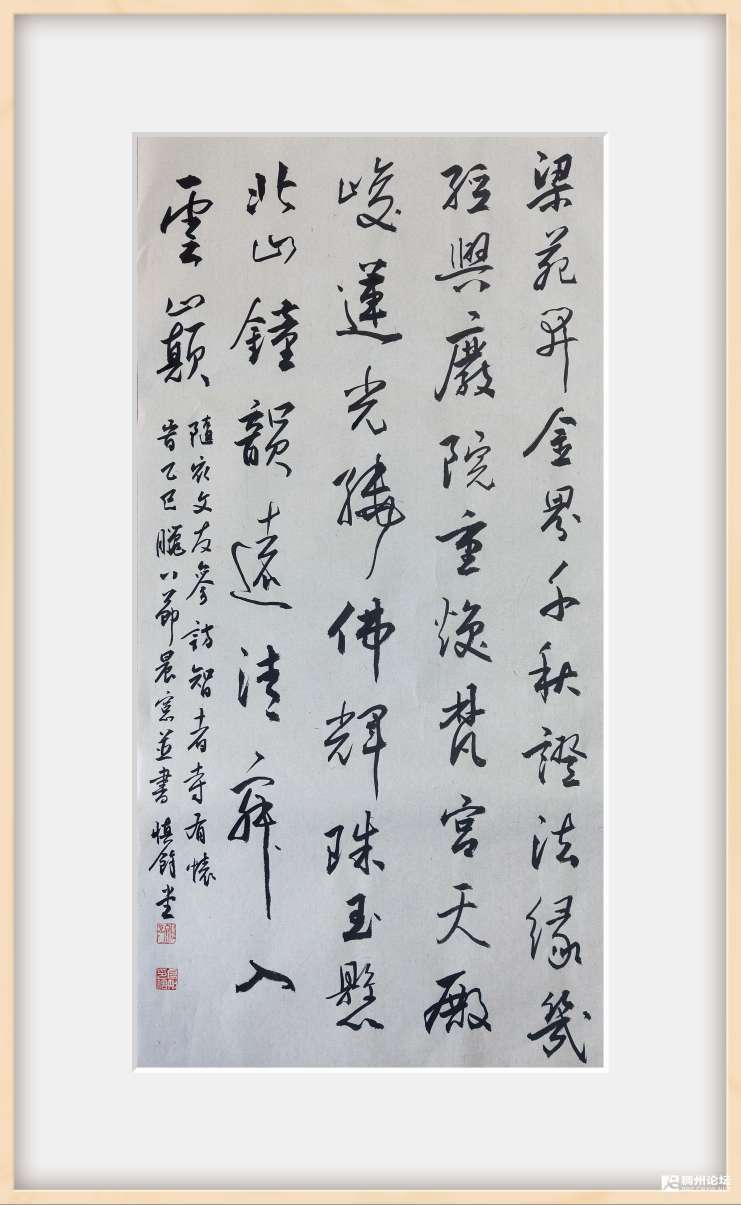 梁苑昇金界千秋證法緣幾
經興廢院重煥梵宮天殿
峻蓮光繞佛輝珠玉懸
北山鐘韻遠清入
雲巔
隨衆文友參訪智者寺有懷
旹乙巳臘八節晨窓並書 慎餘堂
稠州论坛